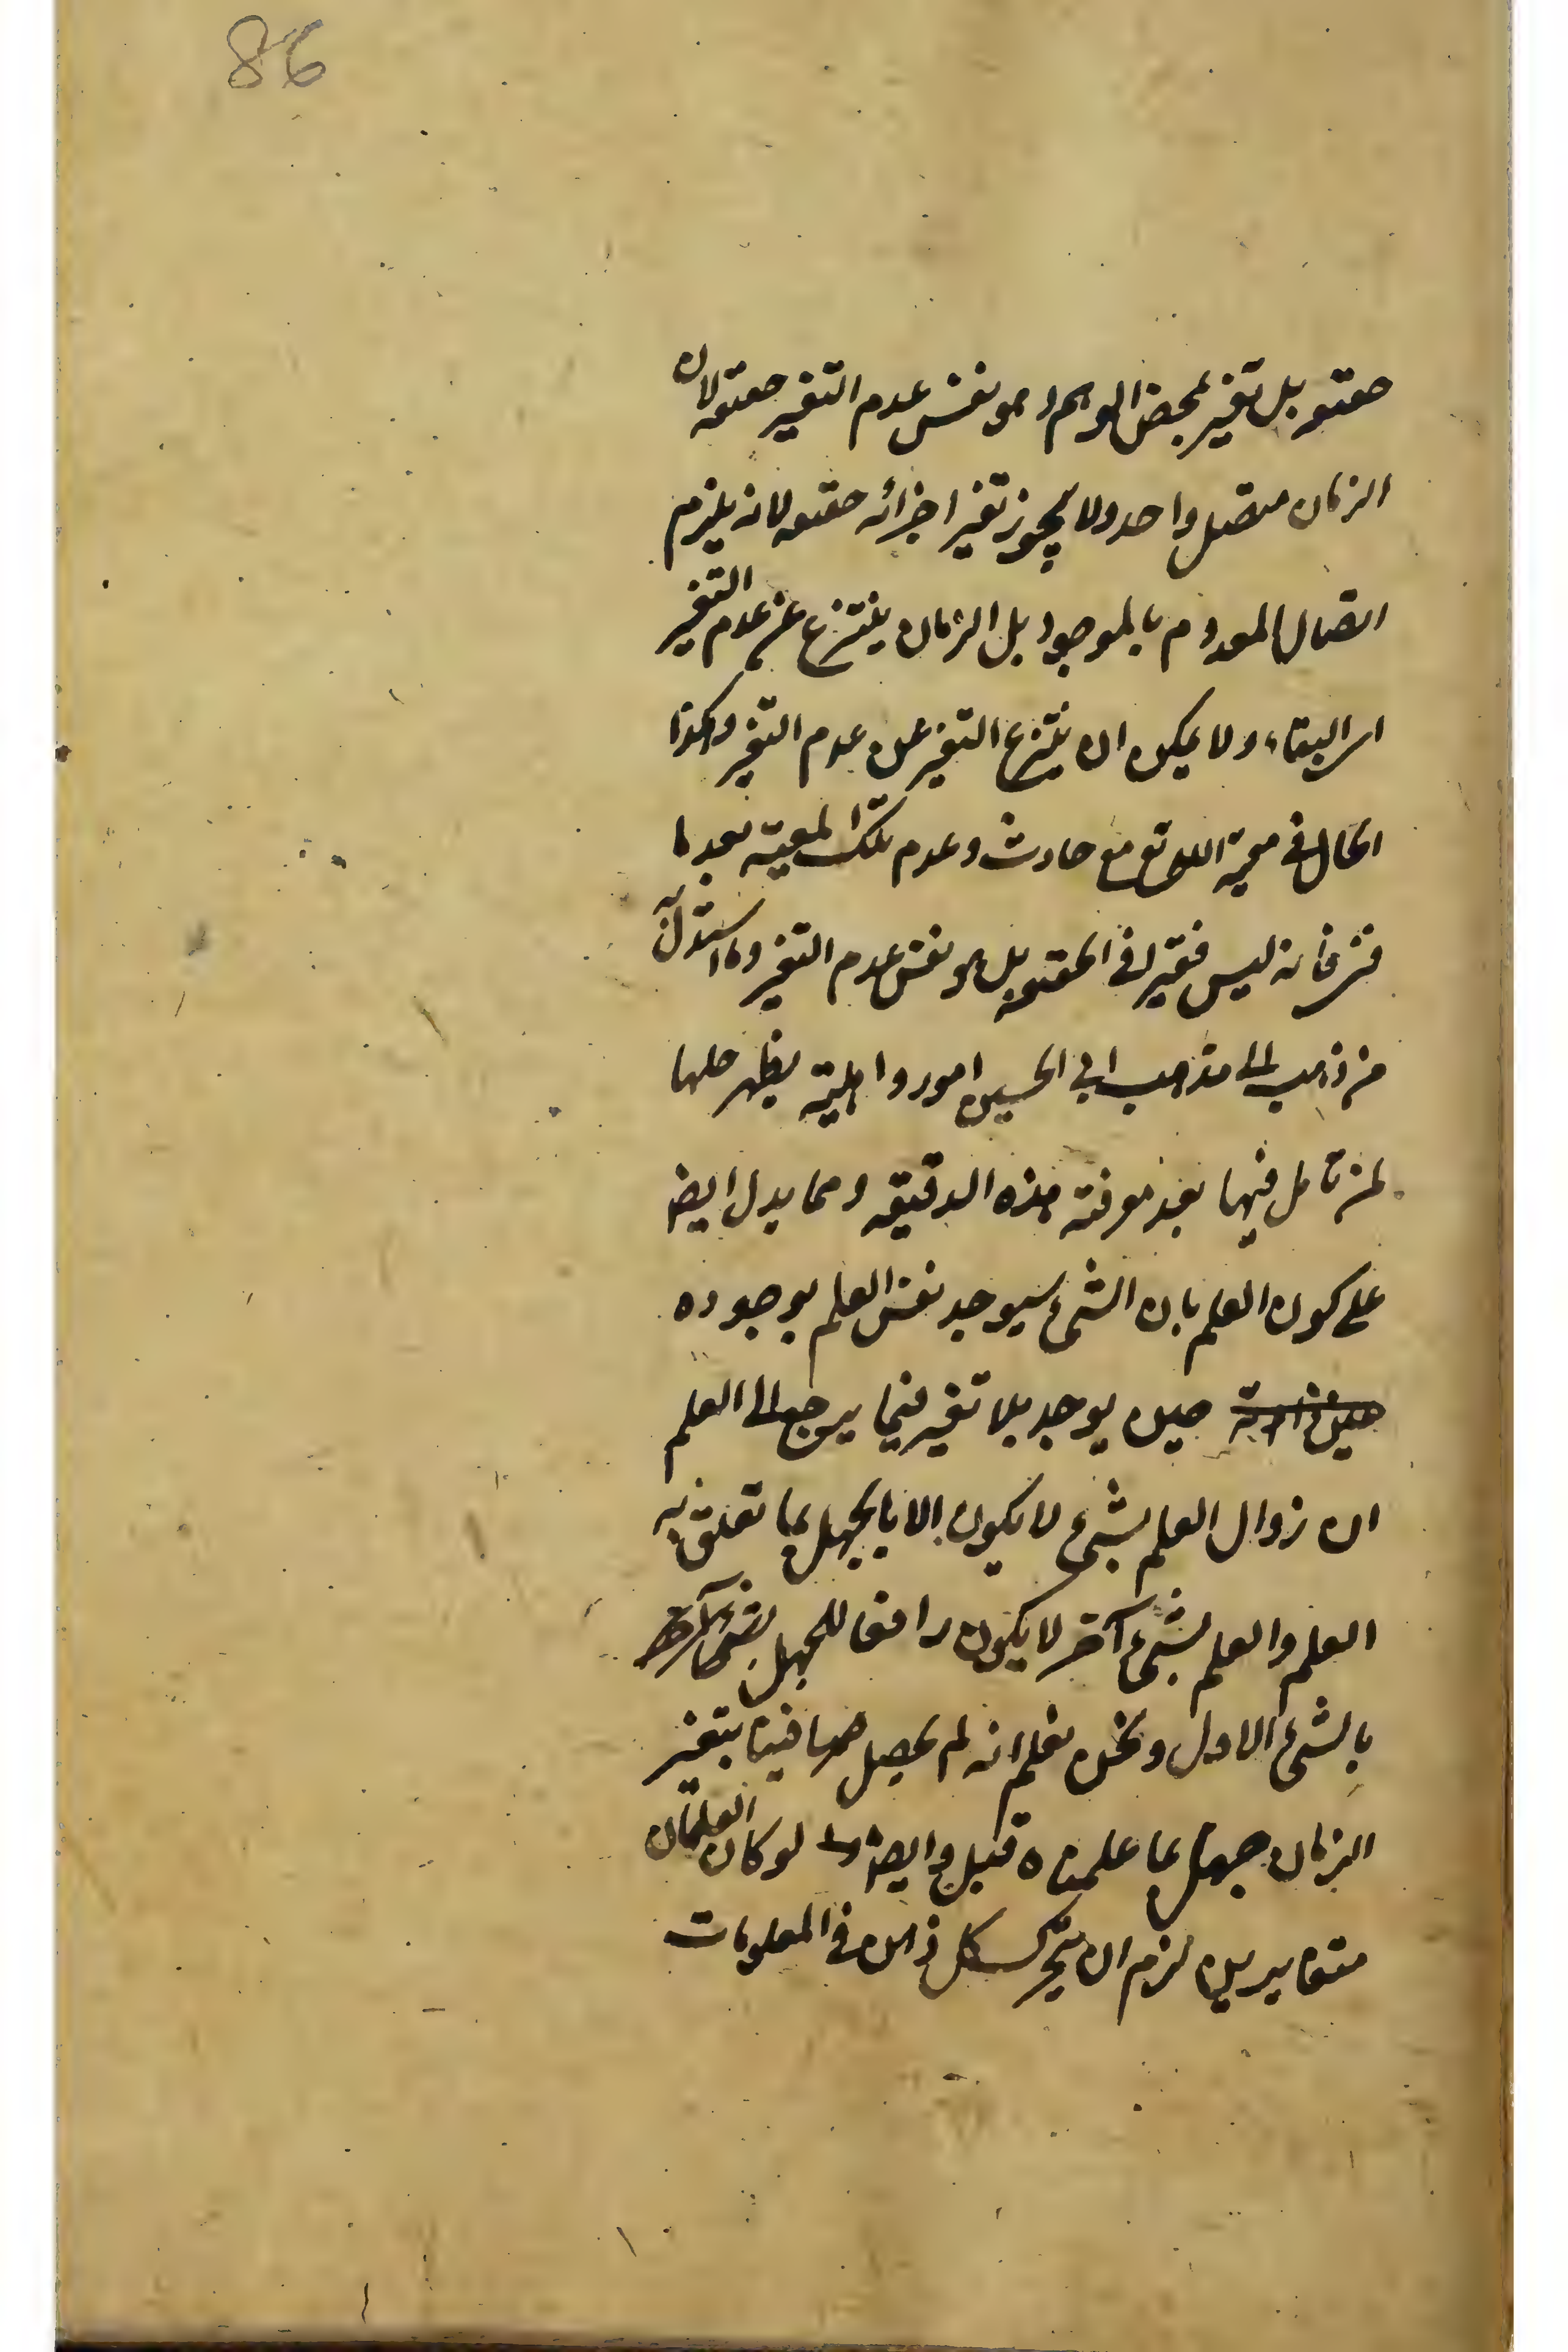 86
حقيقة بل تغير بمحض الوهم و هو نفس عدم التغير حقيقة لان
الزمان متصل واحد ولا يجوز تغير اجزائه حقيقة لانه يلزم
اتصال المعدوم بالموجود بل الزمان ينتزع عن عدم التغير
اى البقاء ولا يمكن ان ينتزع التغير عن عدم التغير وكذا
الحال فى معية الله تع مع حادث وعدم تلك المعية بعد ما
فنى فانه ليس فى الحقيقة بل هو نفس عدم التغير وما استدل به
من ذهب الى مذهب ابى الحسين امور واهية يظهر حلها
لمن تامل فيها بعد معرفة هذه الدقيقة ومما يدل ايضا
على كون العلم بان الشئ سيوجد نفس العلم بوجوده
حين يوجد بلا تغير فيما يرجع الى العلم
ان زوال العلم بشئ لا يكون الا بالجهل بما تعلق به
العلم والعلم بشئ آخر لا يكون رافعا للجهل
بالشئ الاول ونحن نعلم انه لم يحصل فينا بتغير
الزمان جهل بما علمناه قبل وايضا لو كان العلمان
متغايرين لزم ان يتحرك كل ذهن فى المعلومات